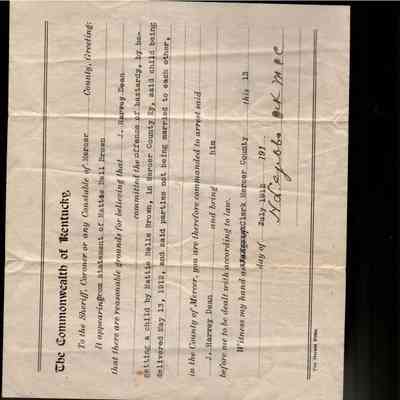 The Commonwealth of Kentucky,
To the Sheriff, Coroner or any Constable of Mercer County, Greeting:
It appearing from statement of Hattie Bell Brown
that there are reasonable grounds for believing that J. Harvey Dean
committed the offence of bastardy, by be-
getting a child by Hattie Belle Brown, in Mercer County Ky, said child being
delivered May 13, 1912, and said parties not being married to each other,
in the County of Mercer, you are therefore commanded to arrest said
J. Harvey Dean and bring him
before me to be dealt with according to law.
Witness my hand as Clerk Mercer County this 13
day of July 1912 191
Clk M C C